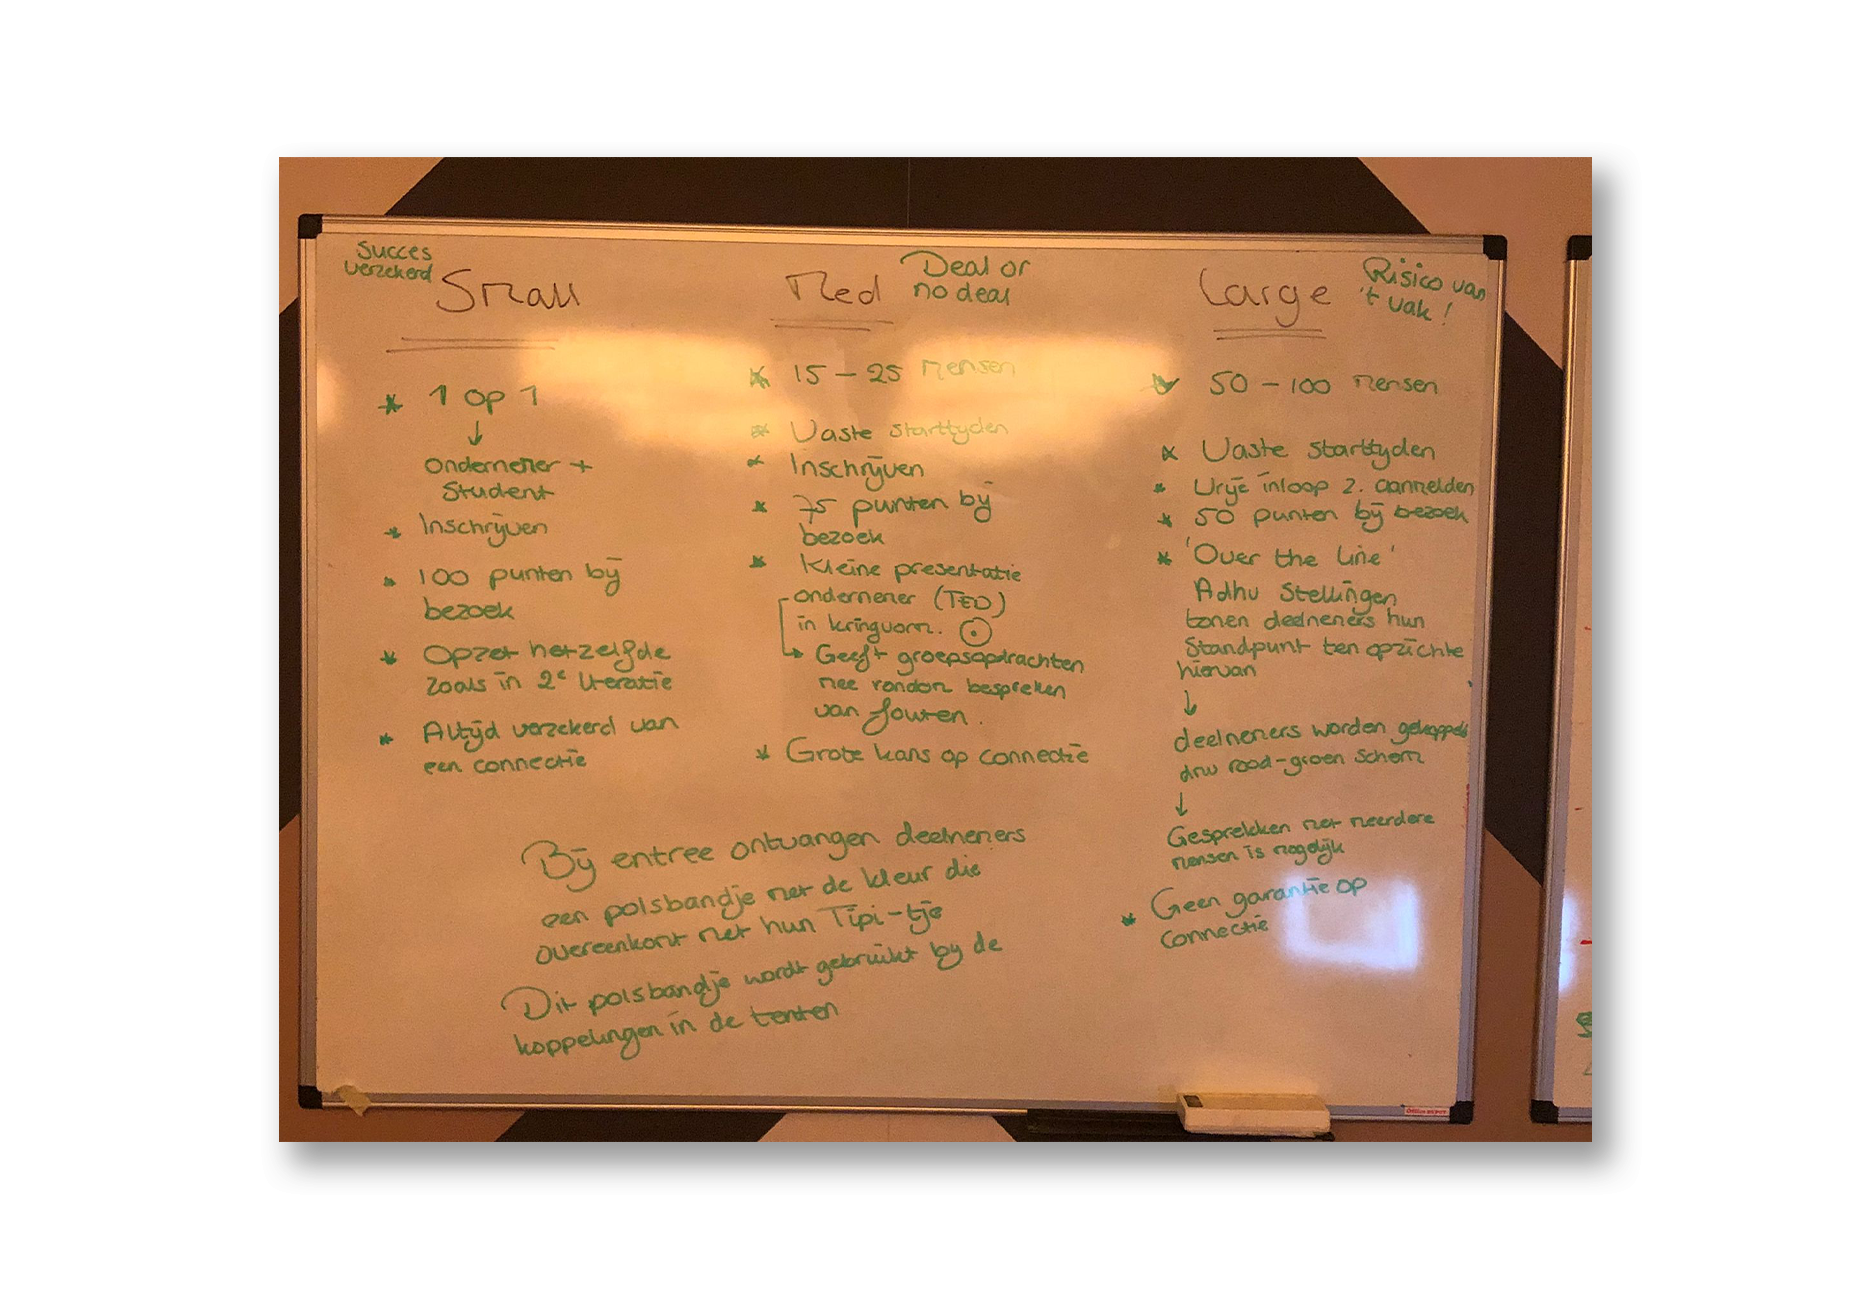 Succes
verzekerd
Small
* 1 op 1
↓
Ondernemer +
Student
* Inschrijven
* 100 punten bij
bezoek
* Opzet hetzelfde
zoals in 2e iteratie
* Altijd verzekerd van
een connectie
Med
Deal or
no deal
* 15 - 25 mensen
* Vaste starttijden
* Inschrijven
* 75 punten bij
bezoek
* Kleine presentatie
ondernemer (TED)
in kringvorm.
Geeft groepsopdrachten
mee rondom bespreken
van fouten.
* Grote kans op connectie
Large
Risico van
't vak!
* 50 - 100 mensen
* Vaste starttijden
* Vrije inloop 2. aanmelden
* 50 punten bij bezoek
* 'Over the line'
Adhv Stellingen
tonen deelnemers hun
Standpunt ten opzichte
hiervan
↓
deelnemers worden gekoppeld
dmv rood-groen scherm
↓
Gesprekken met meerdere
mensen is mogelijk
* Geen garantie op
connectie
Bij entree ontvangen deelnemers
een polsbandje met de kleur die
overeenkomt met hun Tipi-tje
Dit polsbandje wordt gebruikt bij de
koppelingen in de tenten
Office DEPOT